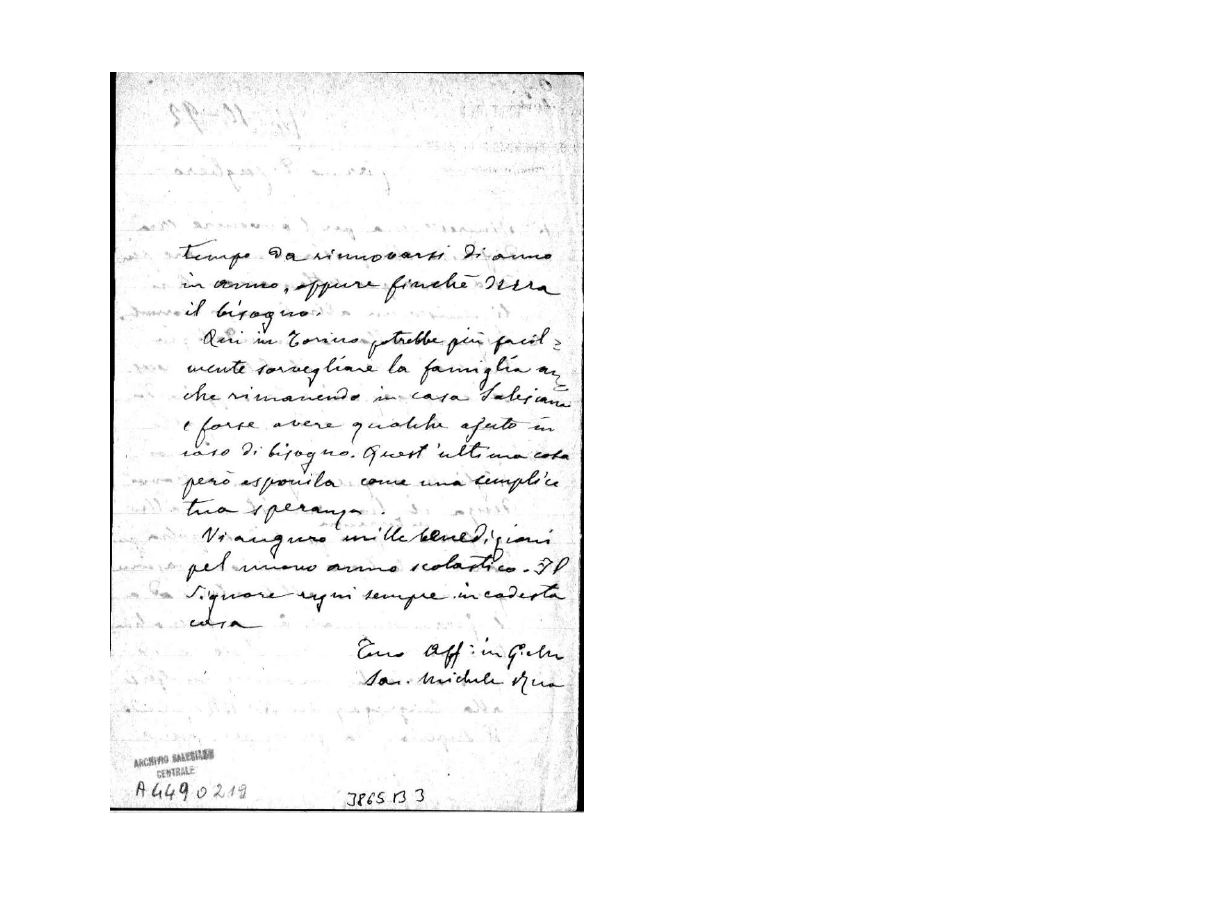 tempo da rinnovarsi di anno
in anno, oppure finchè vi sarà
il bisogno.
Qui in Torino potrebbe più facil=
mente sorvegliare la famiglia an=
che rimanendo in casa Salesiana
e forse avere qualche ajuto in
caso di bisogno. Quest'ultima cosa
però esponila come una semplice
tua speranza.
Vi auguro mille benedizioni
pel nuovo anno scolastico. Il
Signore regni sempre in codesta
casa
Tuo Aff: in G. e M.
Sac. Michele Rua
ARCHIVIO SALESIANO
CENTRALE
A4490219
3865 B 3